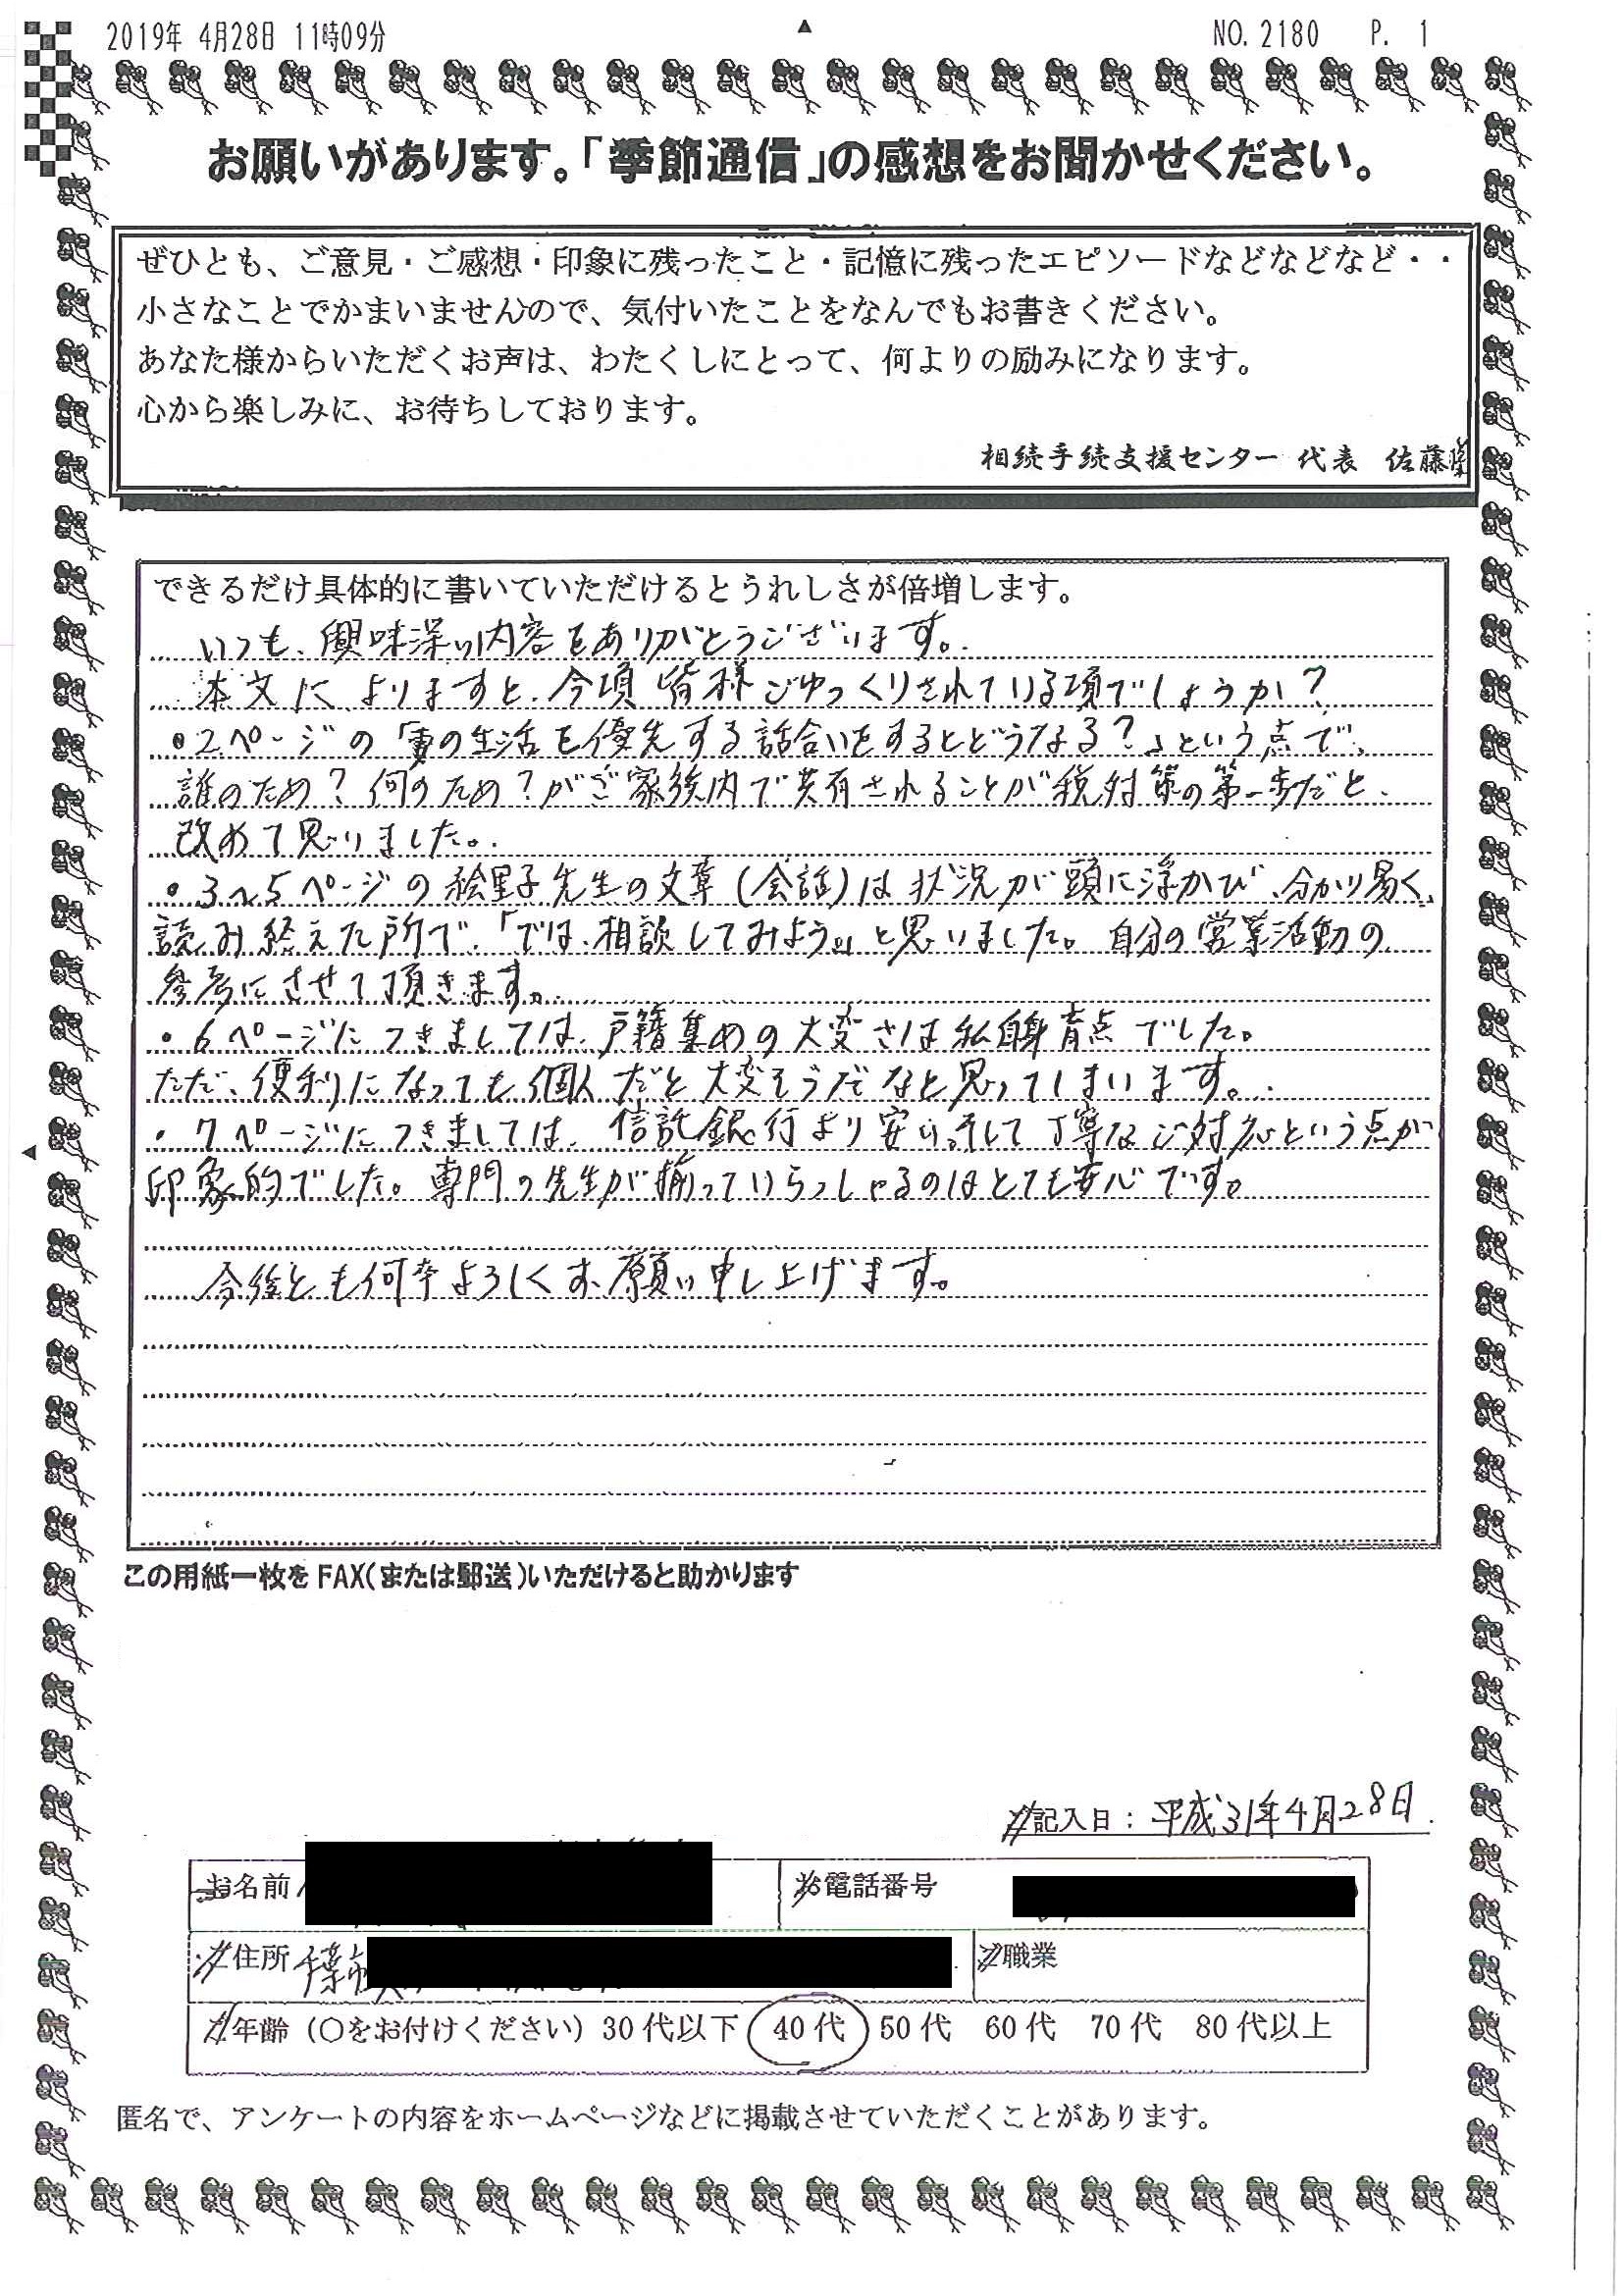 2019年 4月28日 11時09分 NO. 2180 P. 1
お願いがあります。「季節通信」の感想をお聞かせください。
ぜひとも、ご意見・ご感想・印象に残ったこと・記憶に残ったエピソードなどなどなど・・
小さなことでかまいませんので、気付いたことをなんでもお書きください。
あなた様からいただくお声は、わたくしにとって、何よりの励みになります。
心から楽しみに、お待ちしております。
相続手続支援センター 代表 佐藤
できるだけ具体的に書いていただけるとうれしさが倍増します。
いつも、興味深い内容をありがとうございます。
本文によりますと、今頃皆様ごゆっくりされている頃でしょうか?
・2ページの「妻の生活を優先する話合いをするとどうなる?」という点で、
誰のため?何のため?がご家族内で共有されることが税対策の第一歩だと、
改めて思いました。
・3~5ページの絵里子先生の文章(会話)は状況が頭に浮かび、分かり易く、
読み終えた所で、「では、相談してみよう。」と思いました。自分の営業活動の
参考にさせて頂きます。
・6ページにつきましては、戸籍集めの大変さは私自身盲点でした。
ただ、便利になっても個人だと大変そうだなと思ってしまいます。
・7ページにつきましては、信託銀行より安い、そして丁寧なご対応という点が
印象的でした。専門の先生が揃っていらっしゃるのはとても安心です。
今後とも何卒よろしくお願い申し上げます。
この用紙一枚をFAX(または郵送)いただけると助かります
記入日:平成31年4月28日
お名前 お電話番号
住所 千葉 職業
年齢(○をお付けください)30代以下 40代 50代 60代 70代 80代以上
匿名で、アンケートの内容をホームページなどに掲載させていただくことがあります。